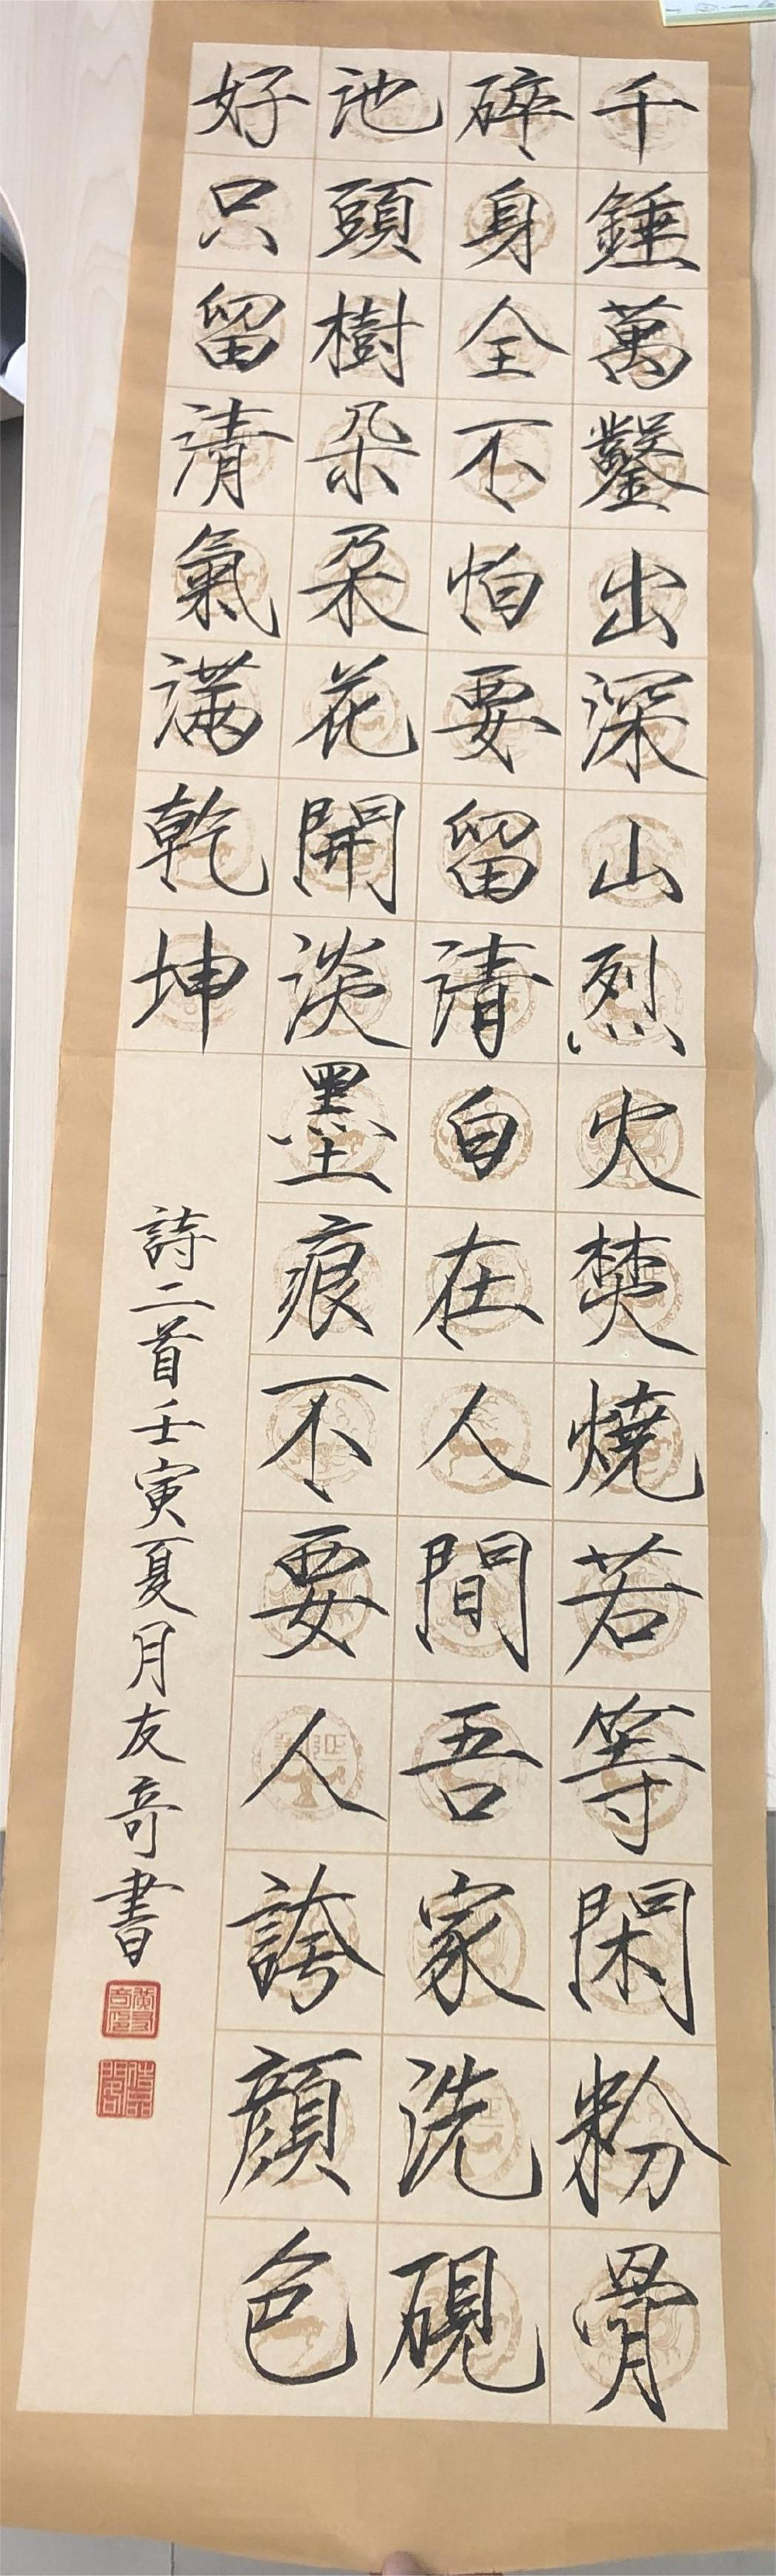 千錘萬鑿出深山烈火焚燒若等閑粉骨
碎身全不怕要留清白在人間吾家洗硯
池頭樹朵朵花開淡墨痕不要人誇顏色
好只留清氣滿乾坤
詩二首壬寅夏月友奇書